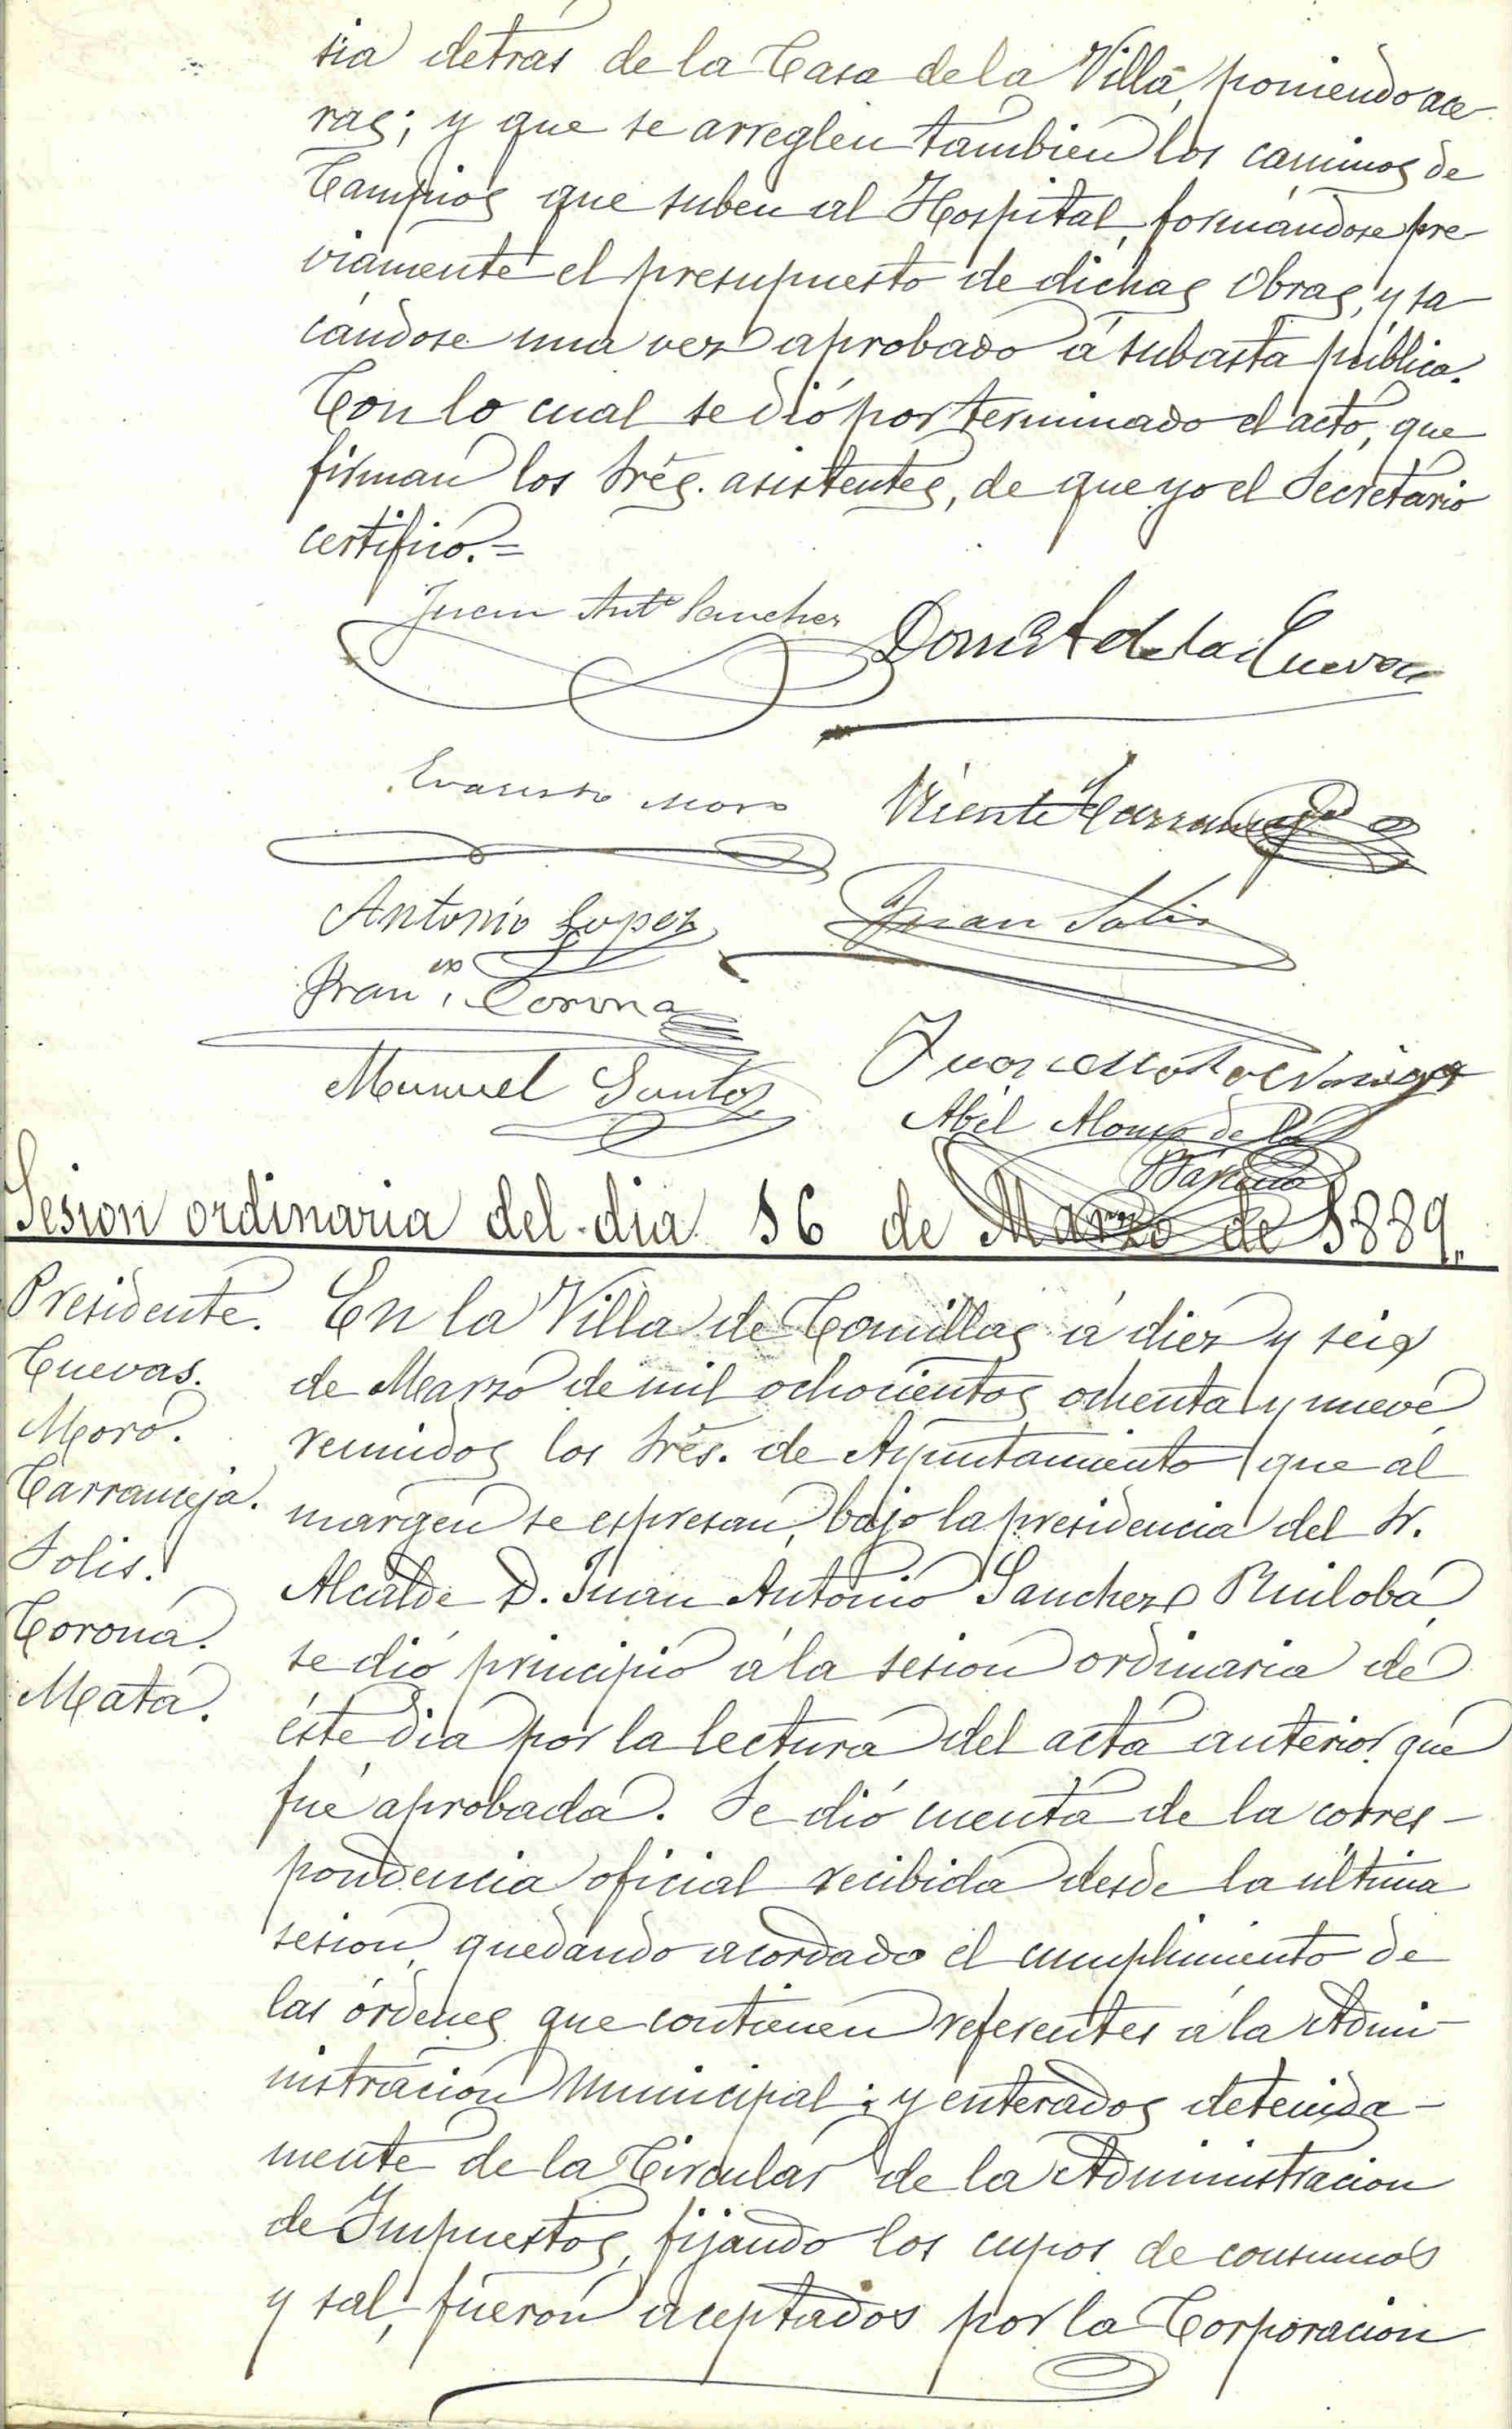 sia detras de la Casa de la Villa, poniendo ace-
ras; y que se arreglen tambien los caminos de
Campios que suben al Hospital, formándose pre-
viamente el presupuesto de dichas obras, y sa-
cándose una vez aprobado á subasta pública.
Con lo cual se dió por terminado el acto, que
firman los Srēs. asistentes, de que yo el Secretario
certifico.=
Juan Antº Sanchez
Dom A de la Cueva
Evaristo Moro
Vicente Carranceja
Antonio Lopez
Juan Solis
Franco. Corona
Manuel Santos
Abel Alonso de la
Bárcena
Sesion ordinaria del dia 16 de Marzo de 1889.
Presidente.
Cuevas.
Moro.
Carranceja.
Solis.
Corona.
Mata.
En la Villa de Comillas á diez y seis
de Marzo de mil ochocientos ochenta y nueve,
reunidos los Srēs. de Ayuntamiento que al
margen se espresan, bajo la presidencia del Sr.
Alcalde D. Juan Antonio Sanchez Ruiloba,
se dió principio á la sesion ordinaria de
éste dia por la lectura del acta anterior que
fué aprobada. Se dió cuenta de la corres-
pondencia oficial recibida desde la última
sesion, quedando acordado el cumplimiento de
las órdenes que contienen referentes á la Admi-
nistracion Municipal; y enterados detenida-
mente de la Circular de la Administracion
de Impuestos, fijando los cupos de consumos
y sal, fueron aceptados por la Corporacion